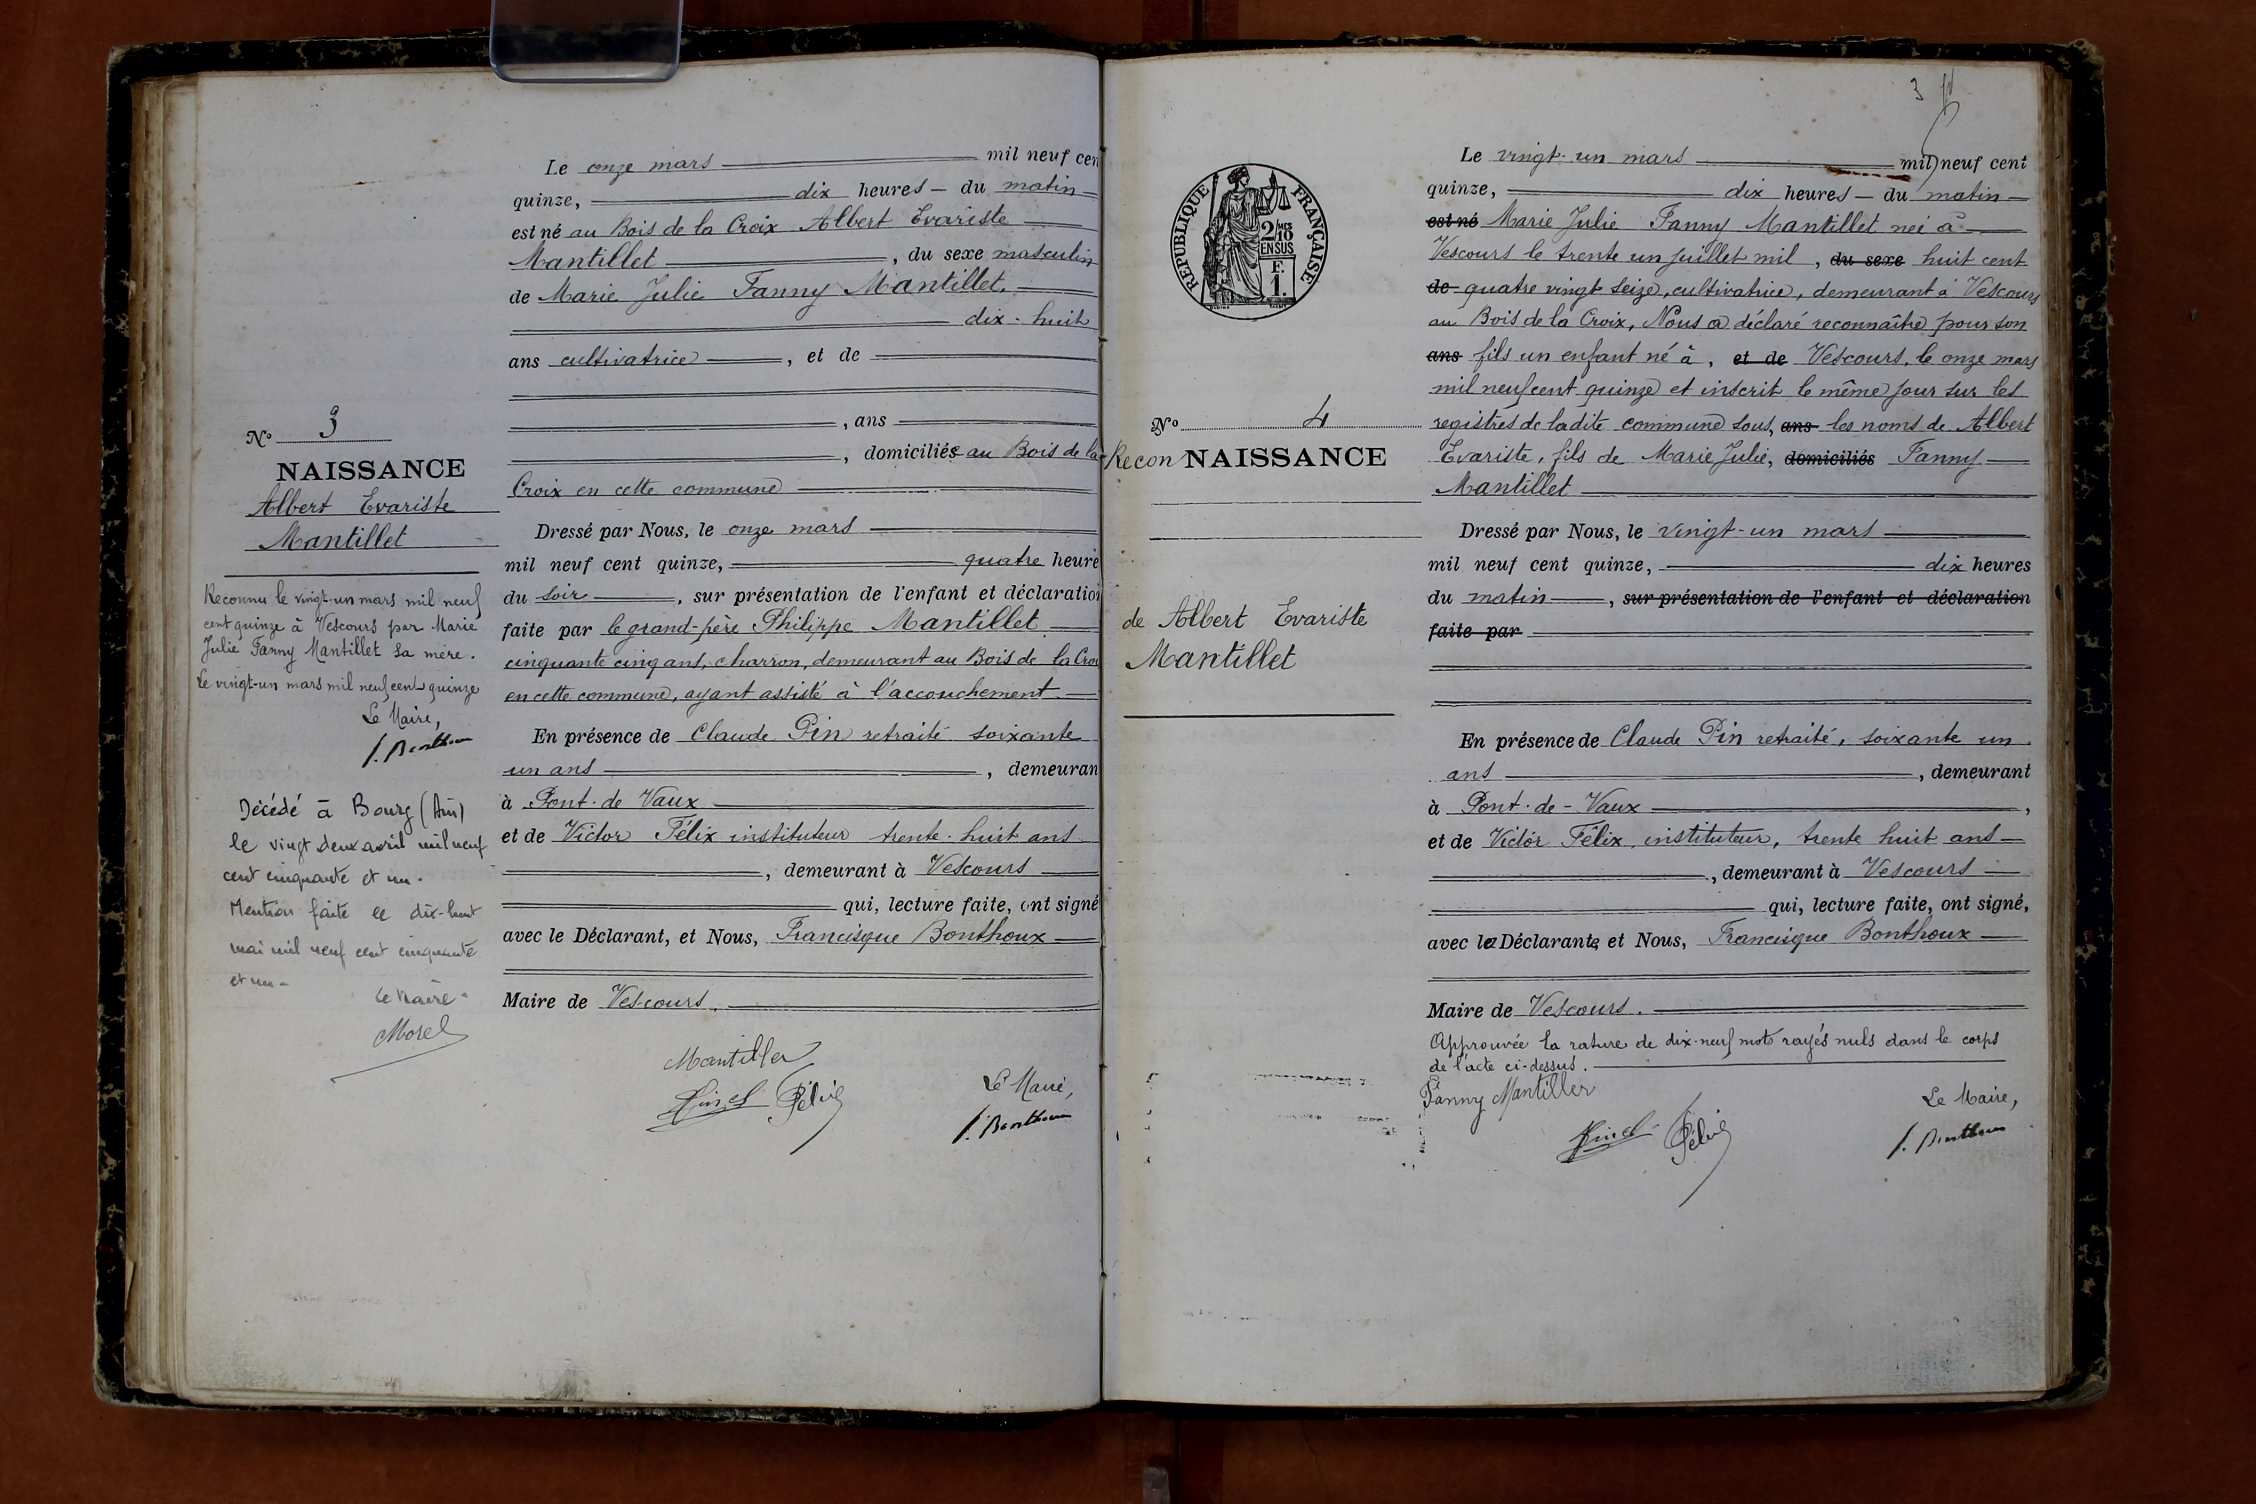 N° 3
NAISSANCE
Albert Evariste
Mantillet
Reconnu le vingt-un mars mil neuf
cent quinze à Vescours par Marie
Julie Fanny Mantillet sa mère.
Le vingt-un mars mil neuf cent quinze
Le Maire,
f. Bonthoux
Décédé à Bourg (Ain)
le vingt deux avril mil neuf
cent cinquante et un.
Mention faite le dix-huit
mai mil neuf cent cinquante
et un -
Le Maire -
Morel
Le onze mars mil neuf cen
quinze, dix heures - du matin
est né au Bois de la Croix Albert Evariste
Mantillet, du sexe masculin
de Marie Julie Fanny Mantillet
dix-huit
ans cultivatrice, et de
, ans
, domiciliés au Bois de la
Croix en cette commune
Dressé par Nous, le onze mars
mil neuf cent quinze, quatre heure
du soir, sur présentation de l'enfant et déclaration
faite par le grand-père Philippe Mantillet
cinquante cinq ans, charron, demeurant au Bois de la Croi
en cette commune, ayant assisté à l'accouchement.
En présence de Claude Pin retraité soixante
un ans, demeuran
à Pont-de Vaux
et de Victor Félix instituteur trente-huit ans
, demeurant à Vescours
qui, lecture faite, ont signé
avec le Déclarant, et Nous, Francisque Bonthoux
Maire de Vescours.
Mantiller
Félix
Le Maire,
f. Bonthoux
3
RÉPUBLIQUE FRANÇAISE
2/10 MES
EN SUS
F.
1.
N° 4
Recon NAISSANCE
de Albert Evariste
Mantillet
Le vingt-un mars mil neuf cent
quinze, dix heures - du matin
est né Marie Julie Fanny Mantillet née à
Vescours le trente un juillet mil, du sexe huit cent
de quatre vingt seize, cultivatrice, demeurant à Vescours
au Bois de la Croix, Nous a déclaré reconnaître pour son
ans fils un enfant né à, et de Vescours, le onze mars
mil neuf cent quinze et inscrit le même jour sur les
registres de ladite commune sous, ans les noms de Albert
Evariste, fils de Marie Julie, domiciliés Fanny
Mantillet
Dressé par Nous, le vingt-un mars
mil neuf cent quinze, dix heures
du matin, sur présentation de l'enfant et déclaration
faite par
En présence de Claude Pin retraité, soixante un
ans, demeurant
à Pont-de-Vaux,
et de Victor Félix, instituteur, trente huit ans
, demeurant à Vescours
qui, lecture faite, ont signé,
avec la Déclarante, et Nous, Francisque Bonthoux
Maire de Vescours.
Approuvée la rature de dix-neuf mots rayés nuls dans le corps
de l'acte ci-dessus.
Fanny Mantiller
Félix
Le Maire,
f. Bonthoux